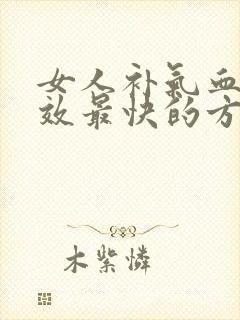 女人补氣血
效最快的方
木紫憐